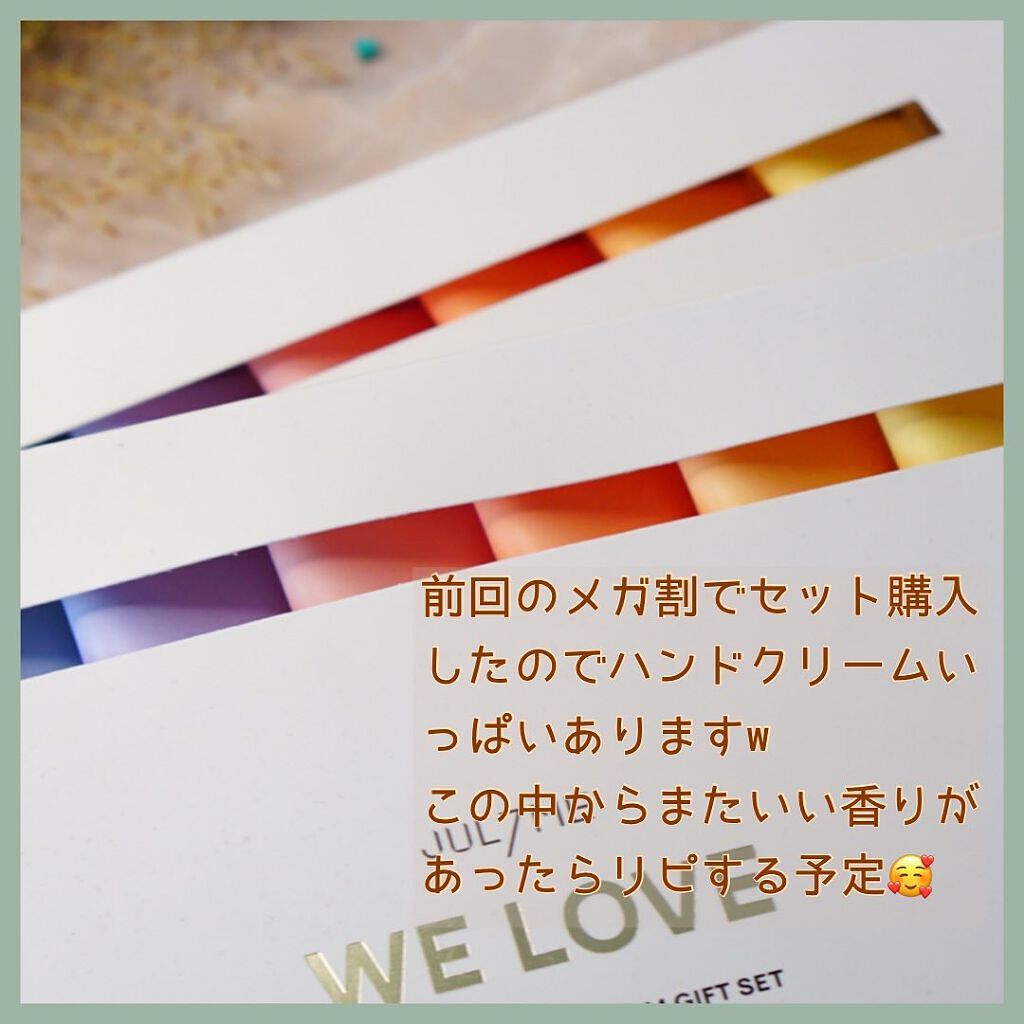 前回のメガ割でセット購入
したのでハンドクリームい
っぱいありますw
この中からまたいい香りが
あったらリピする予定🥰
JUL7ME
WE LOVE
GIFT SET